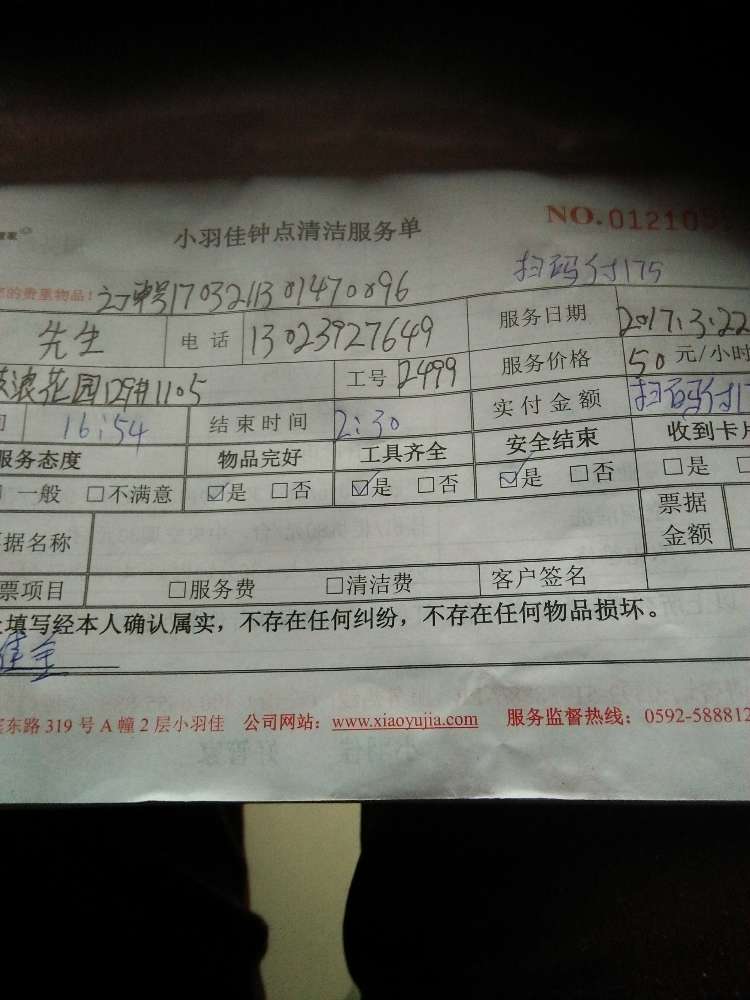 管家
小羽佳钟点清洁服务单 NO.012109
扫码付175
的贵重物品! 订单号1703211301470896
先生 电话 13023927649 服务日期 2017.3.22
浪花园129#1105 工号 2499 服务价格 50 元/小时
间 16:54 结束时间 2:30 实付金额 扫码付17
服务态度 物品完好 工具齐全 安全结束 收到卡片
一般 □不满意 ☑是 □否 ☑是 □否 ☑是 □否 □是
票据名称 票据金额
票项目 □服务费 □清洁费 客户签名
上填写经本人确认属实，不存在任何纠纷，不存在任何物品损坏。
佳宝
东路319号A幢2层小羽佳 公司网站：www.xiaoyujia.com 服务监督热线：0592-588812